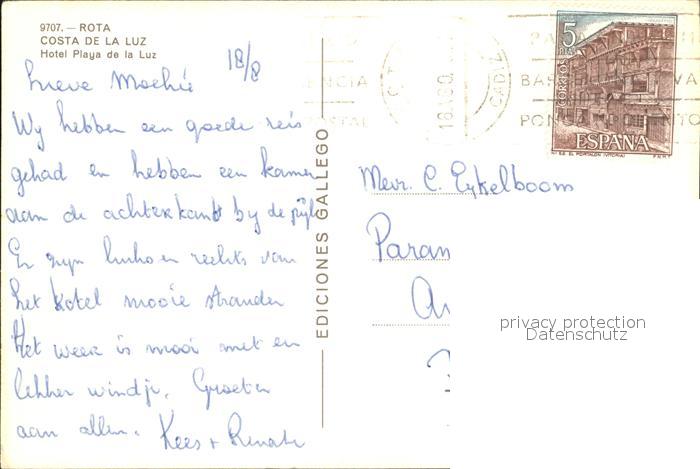 9707. — ROTA
COSTA DE LA LUZ
Hotel Playa de la Luz
18/8
Lieve Moekie
Wy hebben een goede reis
gehad en hebben een kamer
aan de achterkant by de pijl
Er zyn links en rechts van
het hotel mooie stranden
Het weer is mooi met een
lekker windje. Groeten
aan allen. Kees + Renate
EDICIONES GALLEGO
CORREOS
5 PTAS
ESPAÑA
EL PORTALON (VITORIA) F.N.M.T.
CADIZ
Mevr. C. Eykelboom
Param
privacy protection
Datenschutz